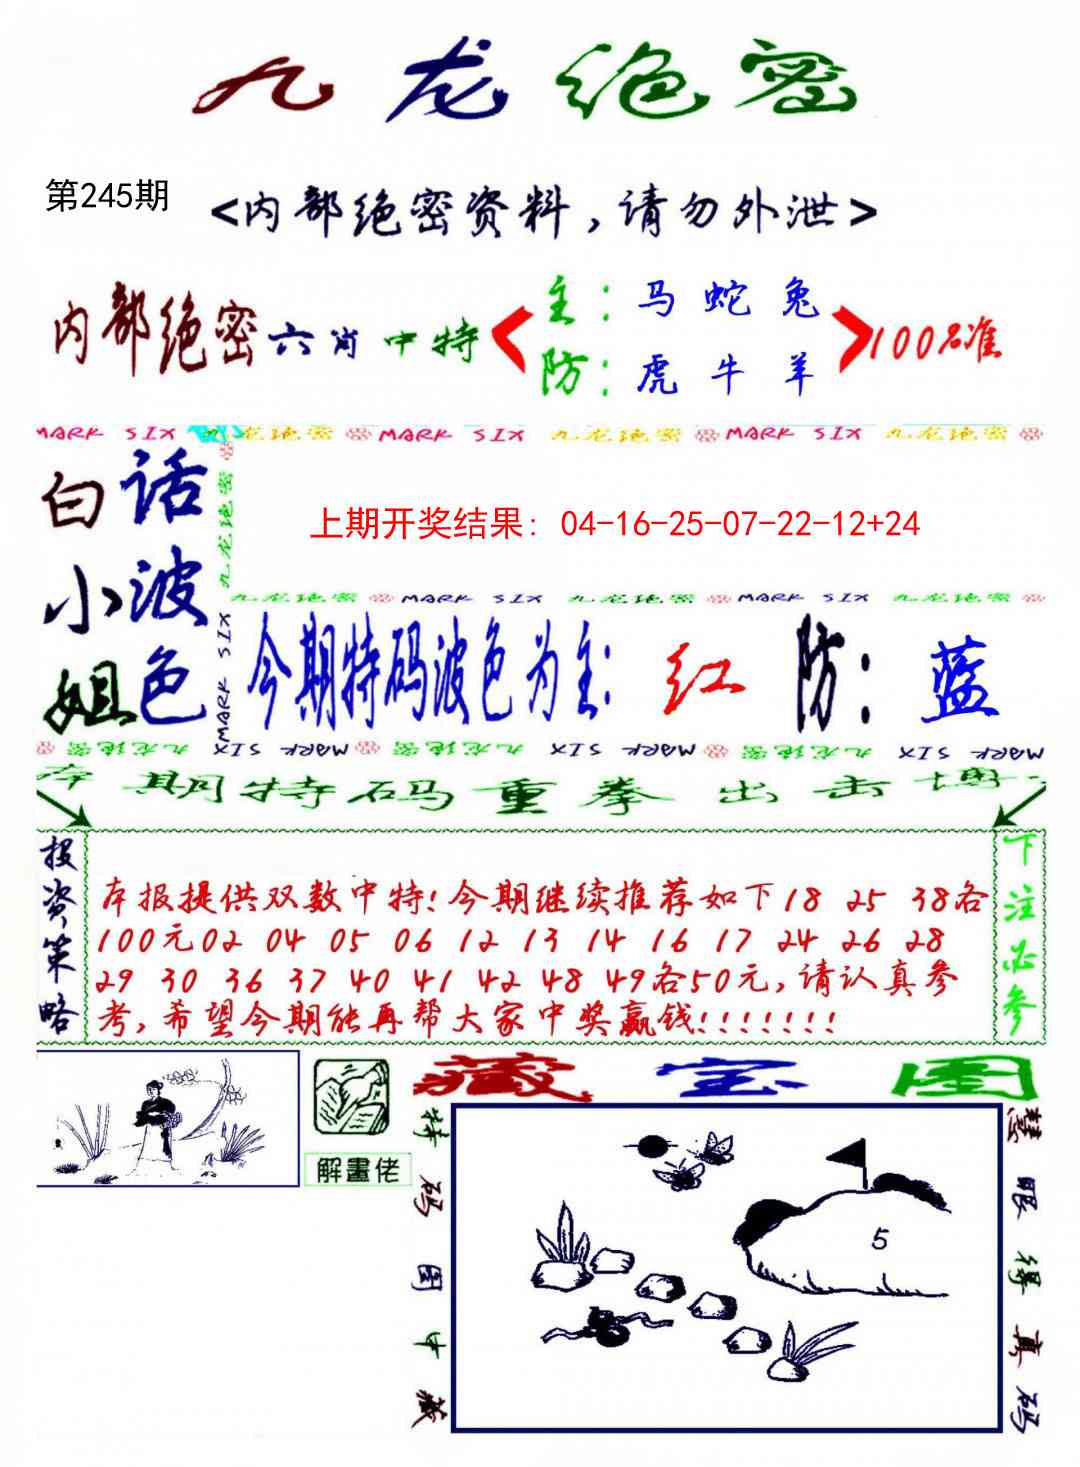 九龙绝密
第245期
<内部绝密资料，请勿外泄>
内部绝密六肖中特
主：马 蛇 兔
防：虎 牛 羊
100%准
MARK SIX 九龙绝密 MARK SIX 九龙绝密 MARK SIX 九龙绝密
白话
小波
姐色
九龙绝密
MARK SIX
上期开奖结果: 04-16-25-07-22-12+24
九龙绝密 MARK SIX 九龙绝密 MARK SIX 九龙绝密
今期特码波色为主: 红 防: 蓝
九龙绝密 MARK SIX 九龙绝密 MARK SIX 九龙绝密 MARK SIX
本期特码重拳出击博
投资策略
本报提供双数中特!今期继续推荐如下18 25 38各
100元02 04 05 06 12 13 14 16 17 24 26 28
29 30 36 37 40 41 42 48 49各50元,请认真参
考,希望今期能再帮大家中奖赢钱!!!!!!!
下注必参
解畫佬
藏宝图
特码图中藏
5
慧眼得真码